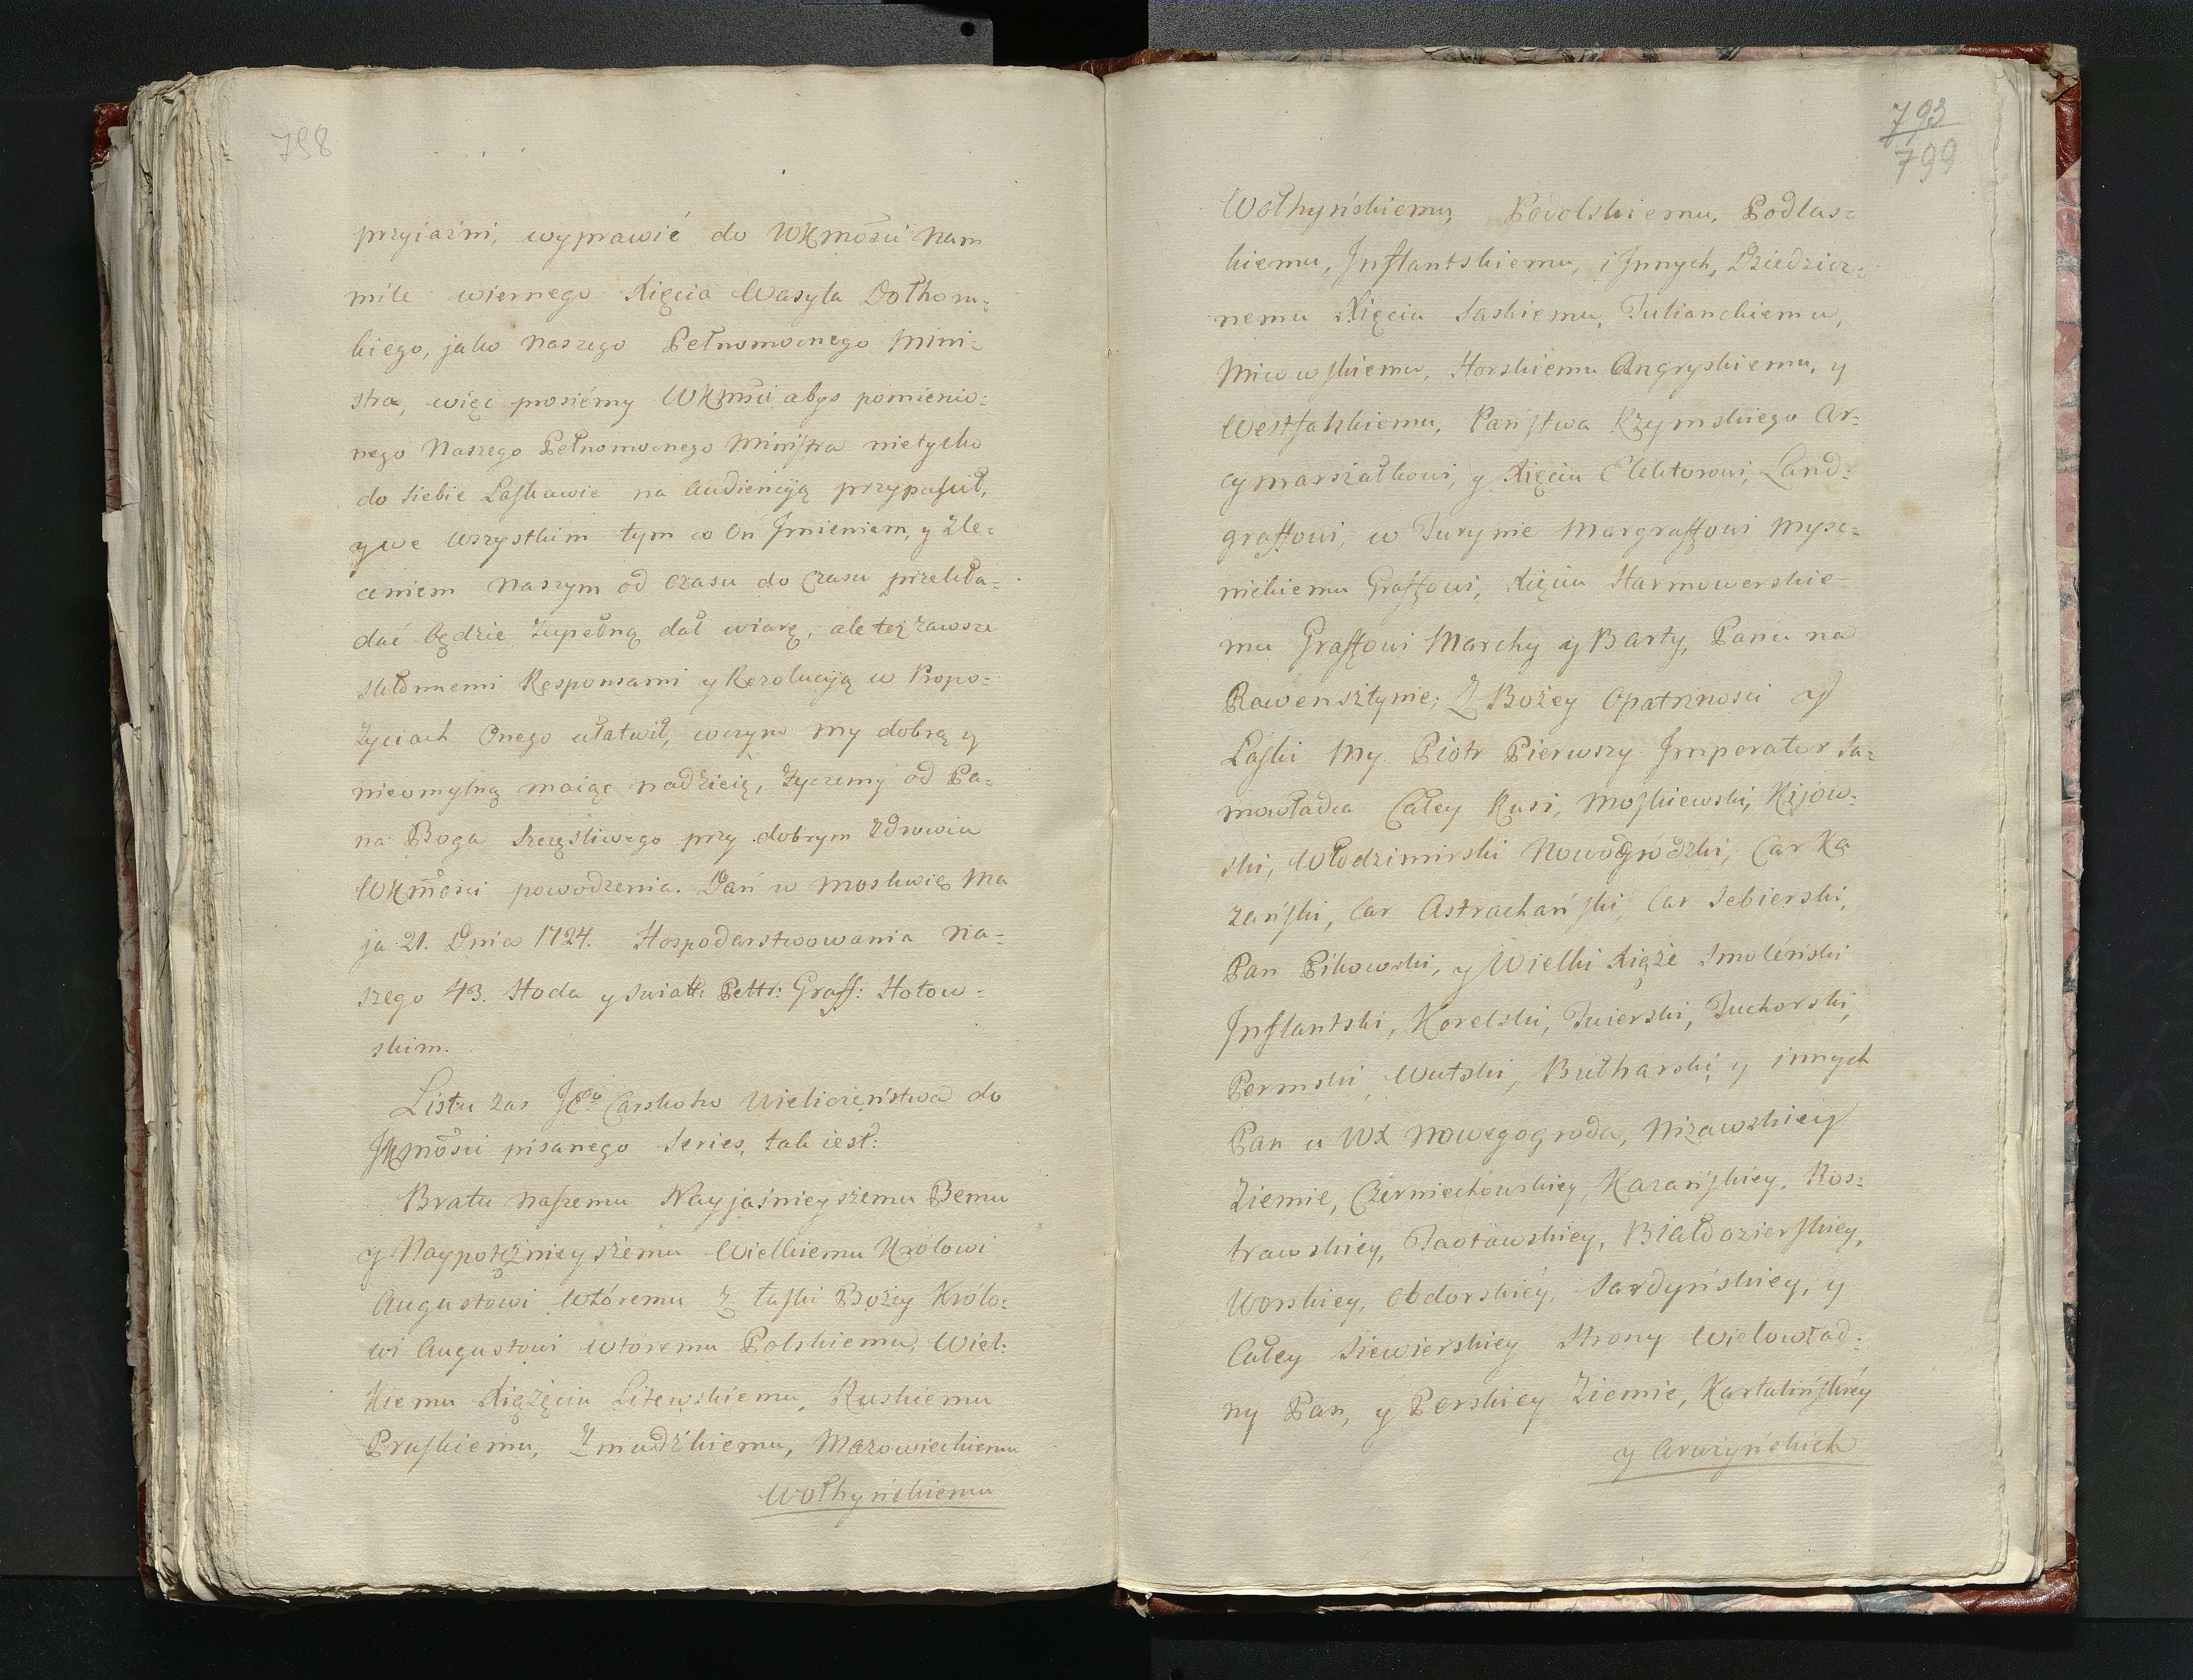 798
przyiaźni, wyprawić do WKmości nam
mile wiernego Xięcia Wasyla Dołhoru=
kiego, jako naszego Pełnomocnego Mini=
stra, więc prosiémy WKmści abyś pomienio=
nego Naszego Pełnomocnego Ministra nietylko
do siebie Łaskawie na Audiencyą przypuścił,
y we wszystkim tym co On Imieniem, y Zle=
ceniem naszym od czasu do czasu przekła=
dać będzie zupełną dał wiarę, ale też zawsze
skłonnemi Responsami y Rezolucyą w Propo=
zyciach Onego ułatwił, w czym my dobrą y
nieomylną maiąc nadzieię, życzemy od Pa=
na Boga szczęśliwego przy dobrym zdrowiu
WKmości powodzenia. Dań w Moskwie Ma
ja 21. Dnia 1724. Hospodarstwowania na=
szego 43. Hoda y Swiatt: Pettr: Graff: Hołow=
skim.
Listu zas Jego Carskoho Wieliczeństwa do
JKmości pisanego Series, tak iest:
Bratu naszemu Nayjaśnieyszemu Bemu
y Naypotężnieyszemu Wielkiemu Krolowi
Augustowi Wtóremu z łaski Bożey Królo=
wi Augustowi wtoremu Polskiemu, Wiel=
kiemu Xiążęciu Litewskiemu, Ruskiemu
Pruskiemu, Zmudźkiemu, Mazowieckiemu
Wołhyńskiemu
793
799
Wołhyńskiemu, Podolskiemu, Podlas=
kiemu, Inflantskiemu, i Innych, Dziedzicz=
nemu Xięciu Saskiemu, Tulianckiemu,
Miwowskiemu, Horskiemu Angryskiemu, y
Westfalskiemu, Państwa Rzymskiego Ar=
cymarszałkowi, y Xięciu Elektorowi, Land=
graffowi, w Turynie Margraffowi Mysz=
nickiemu Graffowi, Xięciu Harmowerskie=
mu Graffowi Marchy y Barty, Panu na
Rawensztynie; Z Bożey Opatrznosci y
Łaski My Piotr Pierwszy Imperator Sa=
mowładca Całey Rusi, Moskiewski, Kijow=
ski, Włodzimirski Nowogródzki, Car Ka
zański, Car Astrachański, Car Sebierski,
Pan Pikowski, y Wielki Xiąże Smoleński
Inflantski, Korelski, Twierski, Juchorski,
Permski, Wutski, Bułharski y innych
Pan u WX Nowegogroda, Nizawskiey
Ziemie, Czerniechowskiey, Kazańskiey, Ros=
trawskiey, Jaotawskiey, Białdozierskiey,
Uorskiey, Obdorskiey, Sardyńskiey, y
Całey Siewierskiey Strony Wielowład=
ny Pan, y Perskiey Ziemie, Kartalińskiey
y Aruzyńskich